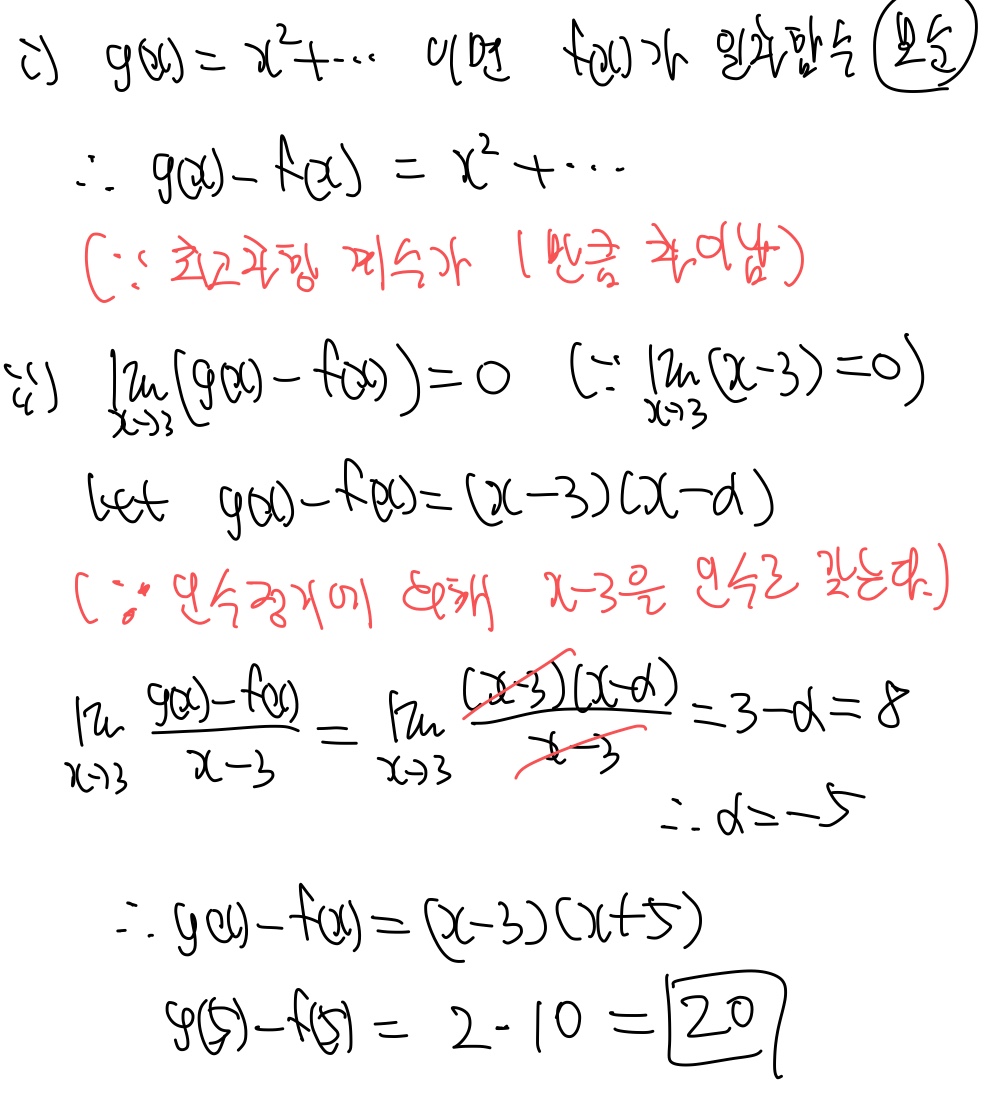 i) g(x) = x²+⋯ 이면 f(x)가 일차함수 모순
∴ g(x) - f(x) = x² + ⋯
(∵ 최고차항 계수가 1만큼 차이남)
ii) lim x→3 (g(x) - f(x)) = 0 (∵ lim x→3 (x-3) = 0)
let g(x) - f(x) = (x-3)(x-α)
(∵ 인수정리에 의해 x-3을 인수로 갖는다.)
lim x→3 (g(x)-f(x))/(x-3) = lim x→3 (x-3)(x-α)/(x-3) = 3-α = 8
∴ α = -5
∴ g(x) - f(x) = (x-3)(x+5)
g(5) - f(5) = 2·10 = 20